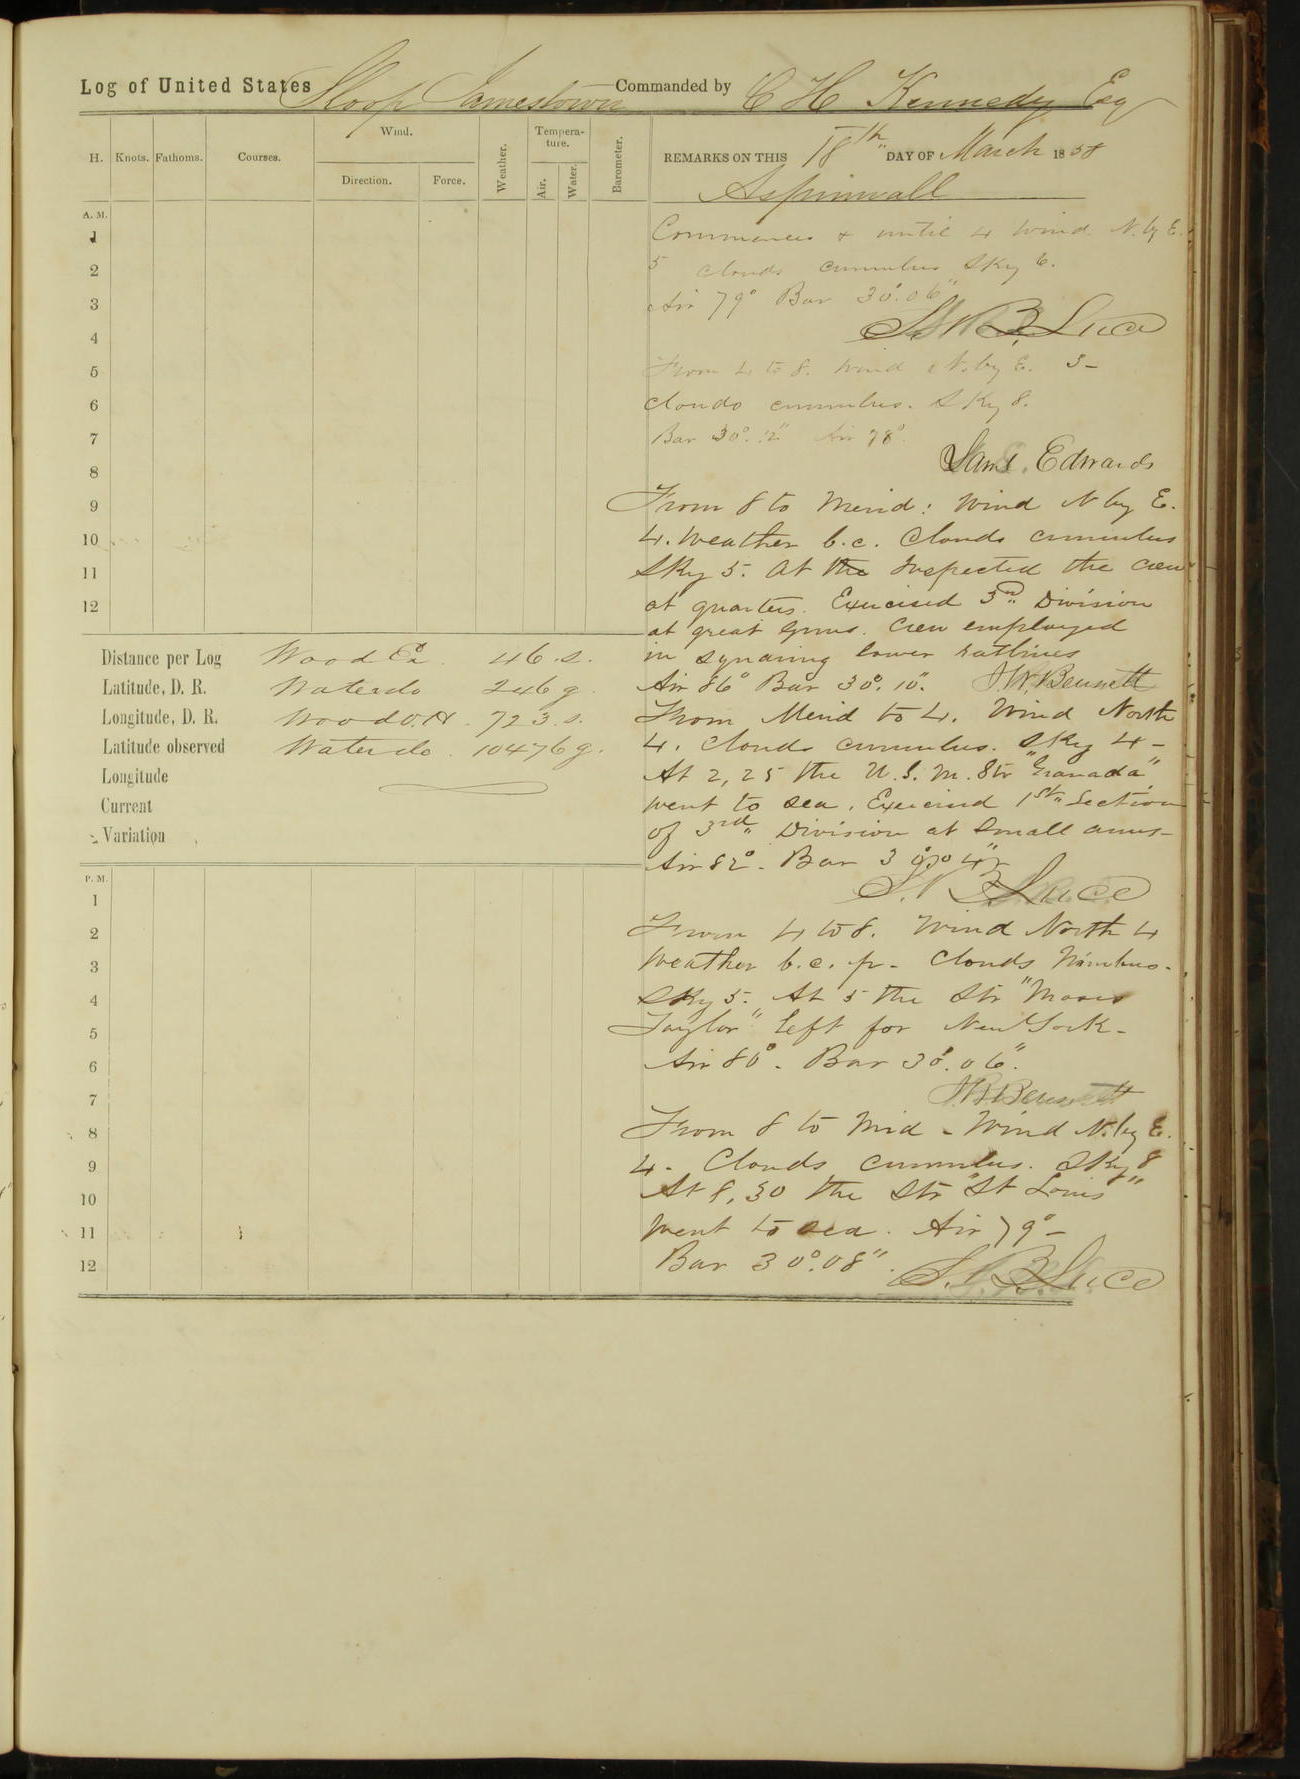 Log of United States Sloop Jamestown Commanded by C H Kennedy Esq
H. Knots. Fathoms. Courses. Wind. Direction. Force. Weather. Tempera-ture. Air. Water. Barometer.
REMARKS ON THIS 18th DAY OF March 1858
Aspinwall
A. M.
1
2
3
4
5
6
7
8
9
10
11
12
Commences & until 4 wind N. by E.
5 clouds cumulus Sky 6.
Air 79° Bar 30°.06"
S. B. Luce
From 4 to 8. Wind N. by E. 3-
clouds cumulus. Sky 8.
Bar 30°.12" Air 78°.
Saml. Edwards
From 8 to Merid: Wind N by E.
4. Weather b.c. Clouds cumulus
Sky 5. At the Inspected the crew
at quarters. Exercised 3rd Division
at great guns. Crew employed
in squaring lower ratlines
Air 86° Bar 30°.10". J. W. Bennett
From Merid to 4. Wind North
4. Clouds cumulus. Sky 4-
At 2,25 the U. S. M. Str "Granada"
went to sea. Exercised 1st Section
of 3rd Division at Small arms-
Air 82°. Bar 30°.04"
S. B. Luce
From 4 to 8. Wind North 4
Weather b.c.p- Clouds Nimbus-
Sky 5. At 5 the Str "Moses
Taylor" left for New York-
Air 80°. Bar 30°.06".
J W Bennett
From 8 to Mid- Wind N. by E.
4- Clouds cumulus. Sky 8
At 8,30 the Str "St Louis"
went to sea. Air 79°-
Bar 30°.08".
S. B. Luce
Distance per Log Wood Ex. 46.s.
Latitude, D. R. Water do 246 g.
Longitude, D. R. Wood O.H. 723.s.
Latitude observed Water do. 10476 g.
Longitude
Current
Variation
P. M.
1
2
3
4
5
6
7
8
9
10
11
12